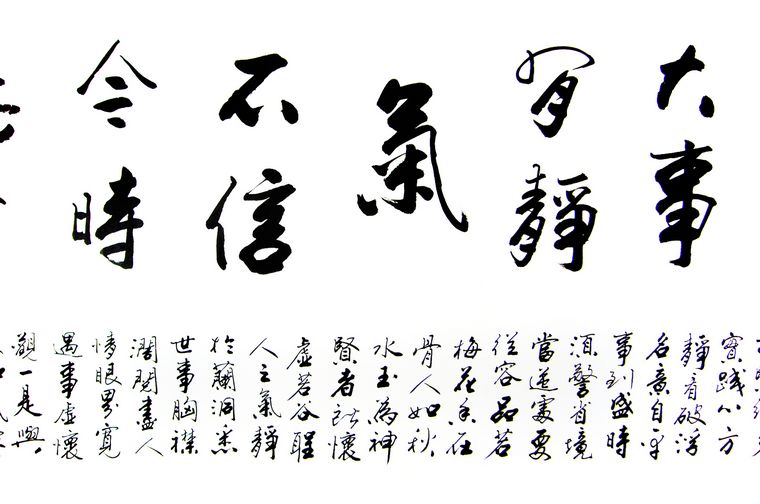 大事
有靜
氣
不信
今時
實踐八方
靜看破浮
名意自平
事到盛時
須警省境
當逆處要
從容品若
梅花香在
骨人如秋
水玉為神
賢者所懷
虛若谷聖
人之氣靜
於蘭洞悉
世事胸襟
濶閱盡人
情眼界寬
遇事虛懷
觀一是與